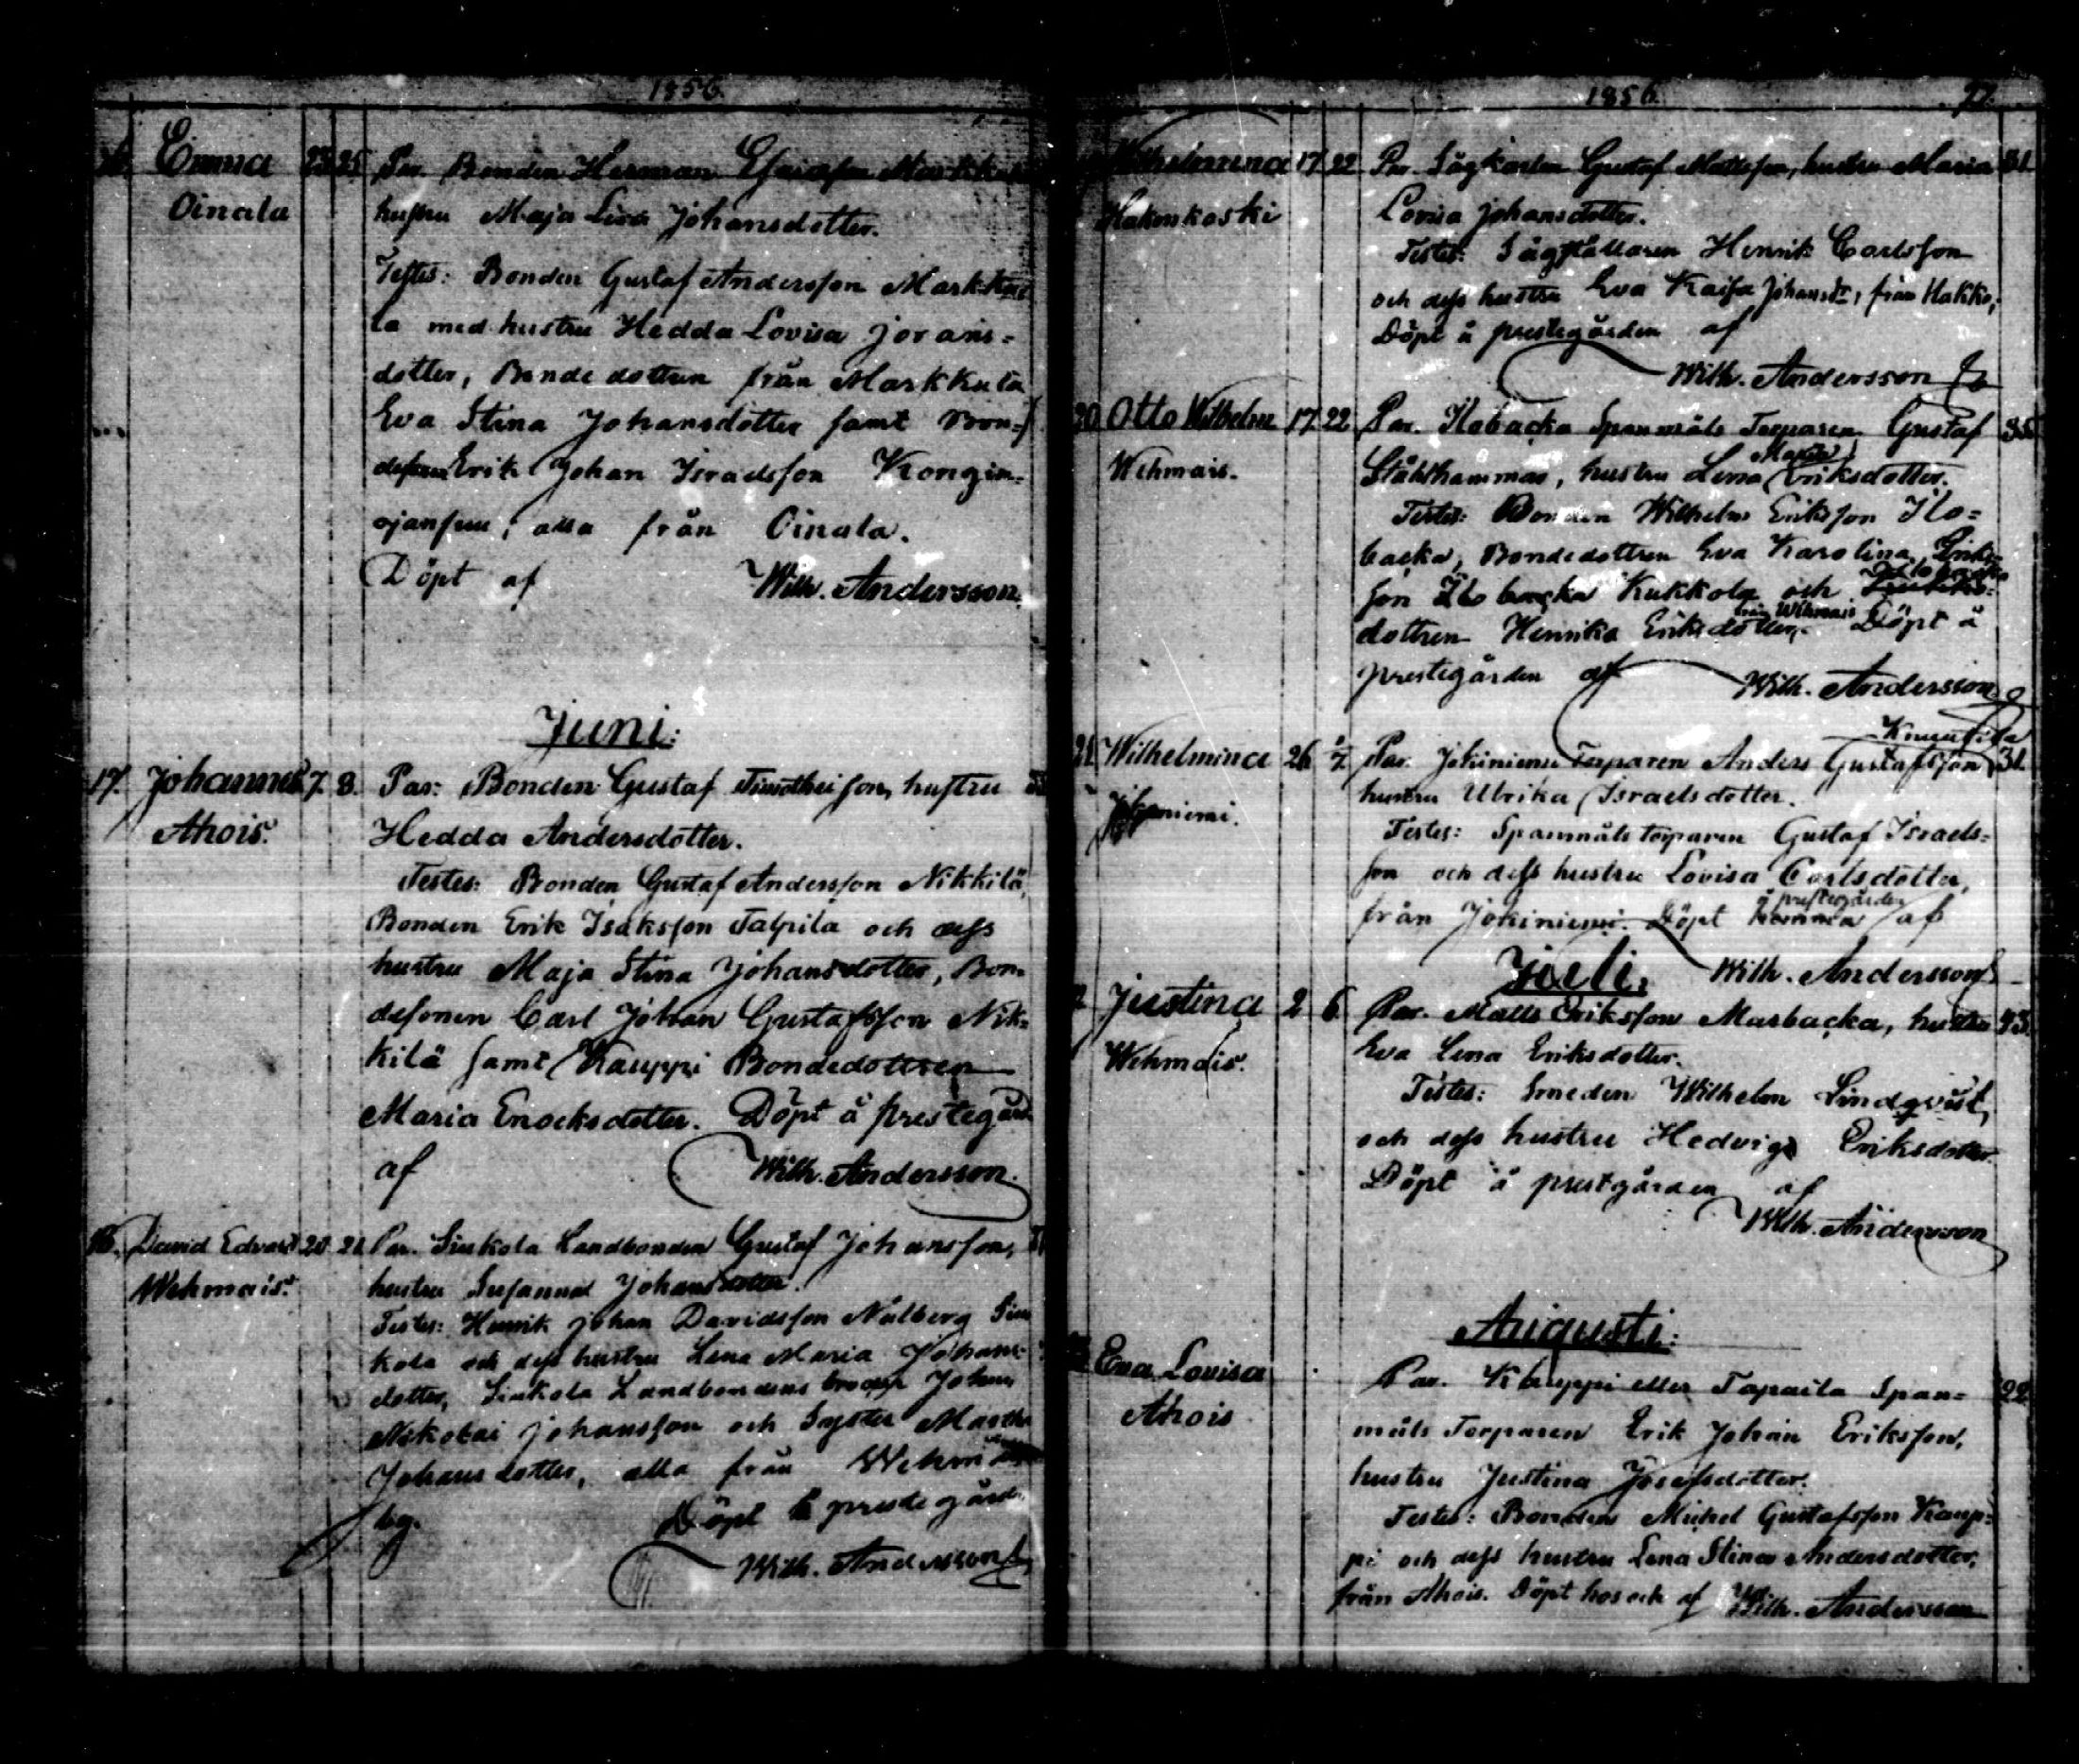 1856.
16. Emma 23 25 Par. Bonden Herman Markku
Oinala hustru Maja Lisa Johansdotter.
Testes: Bonden Gustaf Andersson Markku
la med hustru Hedda Lovisa Jorans-
dotter, Bondedottren från Markkula
Eva Stina Johansdotter samt Bon-
desonen Erik Johan Israelsson
alla från Oinala.
Döpt af Wilh. Andersson.
Juni:
17. Johannes 7. 8. Par: Bonden Gustaf Timotheisson, hustru
Ahois. Hedda Andersdotter.
Testes: Bonden Gustaf Andersson Nikkilä,
Bonden Erik Isaksson Talpila och dess
hustru Maja Stina Johansdotter, Bon-
desonen Carl Johan Gustafsson Nik-
kilä samt Kauppi Bondedottren
Maria Enocksdotter. Döpt å prestegård
af Wilh. Andersson.
18. David Edvard 20 21 Par. Sinkola Landbonden Gustaf Johansson,
Wehmais. hustru Susanna Johansdotter.
Testes: Henrik Johan Davidsson Nålberg Sin
kola och dess hustru Lena Maria Johans-
dotter, Sinkola Landbondens broder Johan
Nikolai Johansson och Syster Martha
Johansdotter, alla från Wehmais
by. Döpt å prestegård.
Wilh. Andersson
1856. 97.
Wilhelmina 17 22 Par. Sågkarlen Gustaf Mattsson, hustru Maria 31.
Hakonkoski Lovisa Johansdotter.
Testes: Sågställaren Henrik Carlsson
och dess hustru Eva Kaisa Johansdr, från Hakko,
Döpt å prestegården af
Wilh. Andersson
20 Otto Wilhelm 17 22 Par. Ilobacka Spannmåls Torparen Gustaf 35
Maria
Wehmais. Stålhammar, hustru Lena Eriksdotter.
Testes: Bonden Wilhelm Eriksson Ilo-
backa, Bondedottren Eva Karolina Eriks-
son Ilobacka Kukkola och
från Wehmais
dottren Henrika Eriksdotter. Döpt å
prestegården af Wilh. Andersson
21 Wilhelmina 26 2/7 Par. Jokiniemi Torparen Anders Gustafsson 31.
Jokiniemi. hustru Ulrika Israelsdotter.
Testes: Spannmåls torparen Gustaf Israels-
son och dess hustru Lovisa Carlsdotter,
å prestegården
från Jokiniemi. Döpt hemma af
Juli. Wilh. Andersson
Justina 2 6 Par. Matts Eriksson Marbacka, hustru 43.
Wehmais. Eva Lena Eriksdotter.
Testes: Smeden Wilhelm Lindqvist,
och dess hustru Hedvig Eriksdotter.
Döpt å prestgården af
Wilh. Andersson
Augusti:
Eva Lovisa Par. Kauppi eller Tapaila Span- 22
Ahois måls Torparen Erik Johan Eriksson,
hustru Justina Josefsdotter.
Testes: Bonden Michel Gustafsson Kaup-
pi och dess hustru Lena Stina Andersdotter,
från Ahois. Döpt hos och af Wilh. Andersson